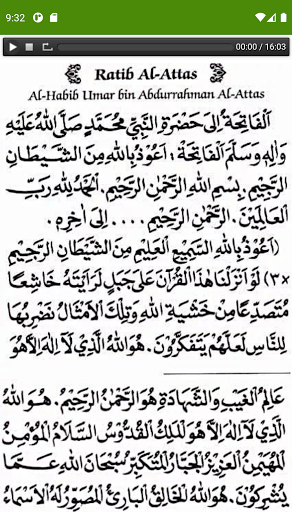 9:32
00:00 / 16:03
Ratib Al-Attas
Al-Habib Umar bin Abdurrahman Al-Attas
اَلْفَاتِحَةُ اِلَى حَضْرَةِ النَّبِيِّ مُحَمَّدٍ صَلَّى اللهُ عَلَيْهِ
وَاٰلِهِ وَسَلَّمَ اَلْفَاتِحَةْ ، اَعُوْذُ بِاللهِ مِنَ الشَّيْطَانِ
الرَّجِيْمِ. بِسْمِ اللهِ الرَّحْمٰنِ الرَّحِيْمِ. اَلْحَمْدُ لِلّٰهِ رَبِّ
الْعَالَمِيْنَ. الرَّحْمٰنِ الرَّحِيْمِ .... اِلَى اٰخِرِهِ.
(اَعُوْذُ بِاللهِ السَّمِيْعِ الْعَلِيْمِ مِنَ الشَّيْطَانِ الرَّجِيْمِ
×٣) لَوْ اَنْزَلْنَا هٰذَا الْقُرْاٰنَ عَلَى جَبَلٍ لَرَاَيْتَهُ خَاشِعًا
مُتَصَدِّعًا مِنْ خَشْيَةِ اللهِ وَتِلْكَ الْاَمْثَالُ نَضْرِبُهَا
لِلنَّاسِ لَعَلَّهُمْ يَتَفَكَّرُوْنَ. هُوَ اللهُ الَّذِيْ لَا اِلٰهَ اِلَّا هُوَ
عَالِمُ الْغَيْبِ وَالشَّهَادَةِ هُوَ الرَّحْمٰنُ الرَّحِيْمُ. هُوَ اللهُ
الَّذِيْ لَا اِلٰهَ اِلَّا هُوَ الْمَلِكُ الْقُدُّوْسُ السَّلَامُ الْمُؤْمِنُ
الْمُهَيْمِنُ الْعَزِيْزُ الْجَبَّارُ الْمُتَكَبِّرُ سُبْحَانَ اللهِ عَمَّا
يُشْرِكُوْنَ. هُوَ اللهُ الْخَالِقُ الْبَارِئُ الْمُصَوِّرُ لَهُ الْاَسْمَاءُ